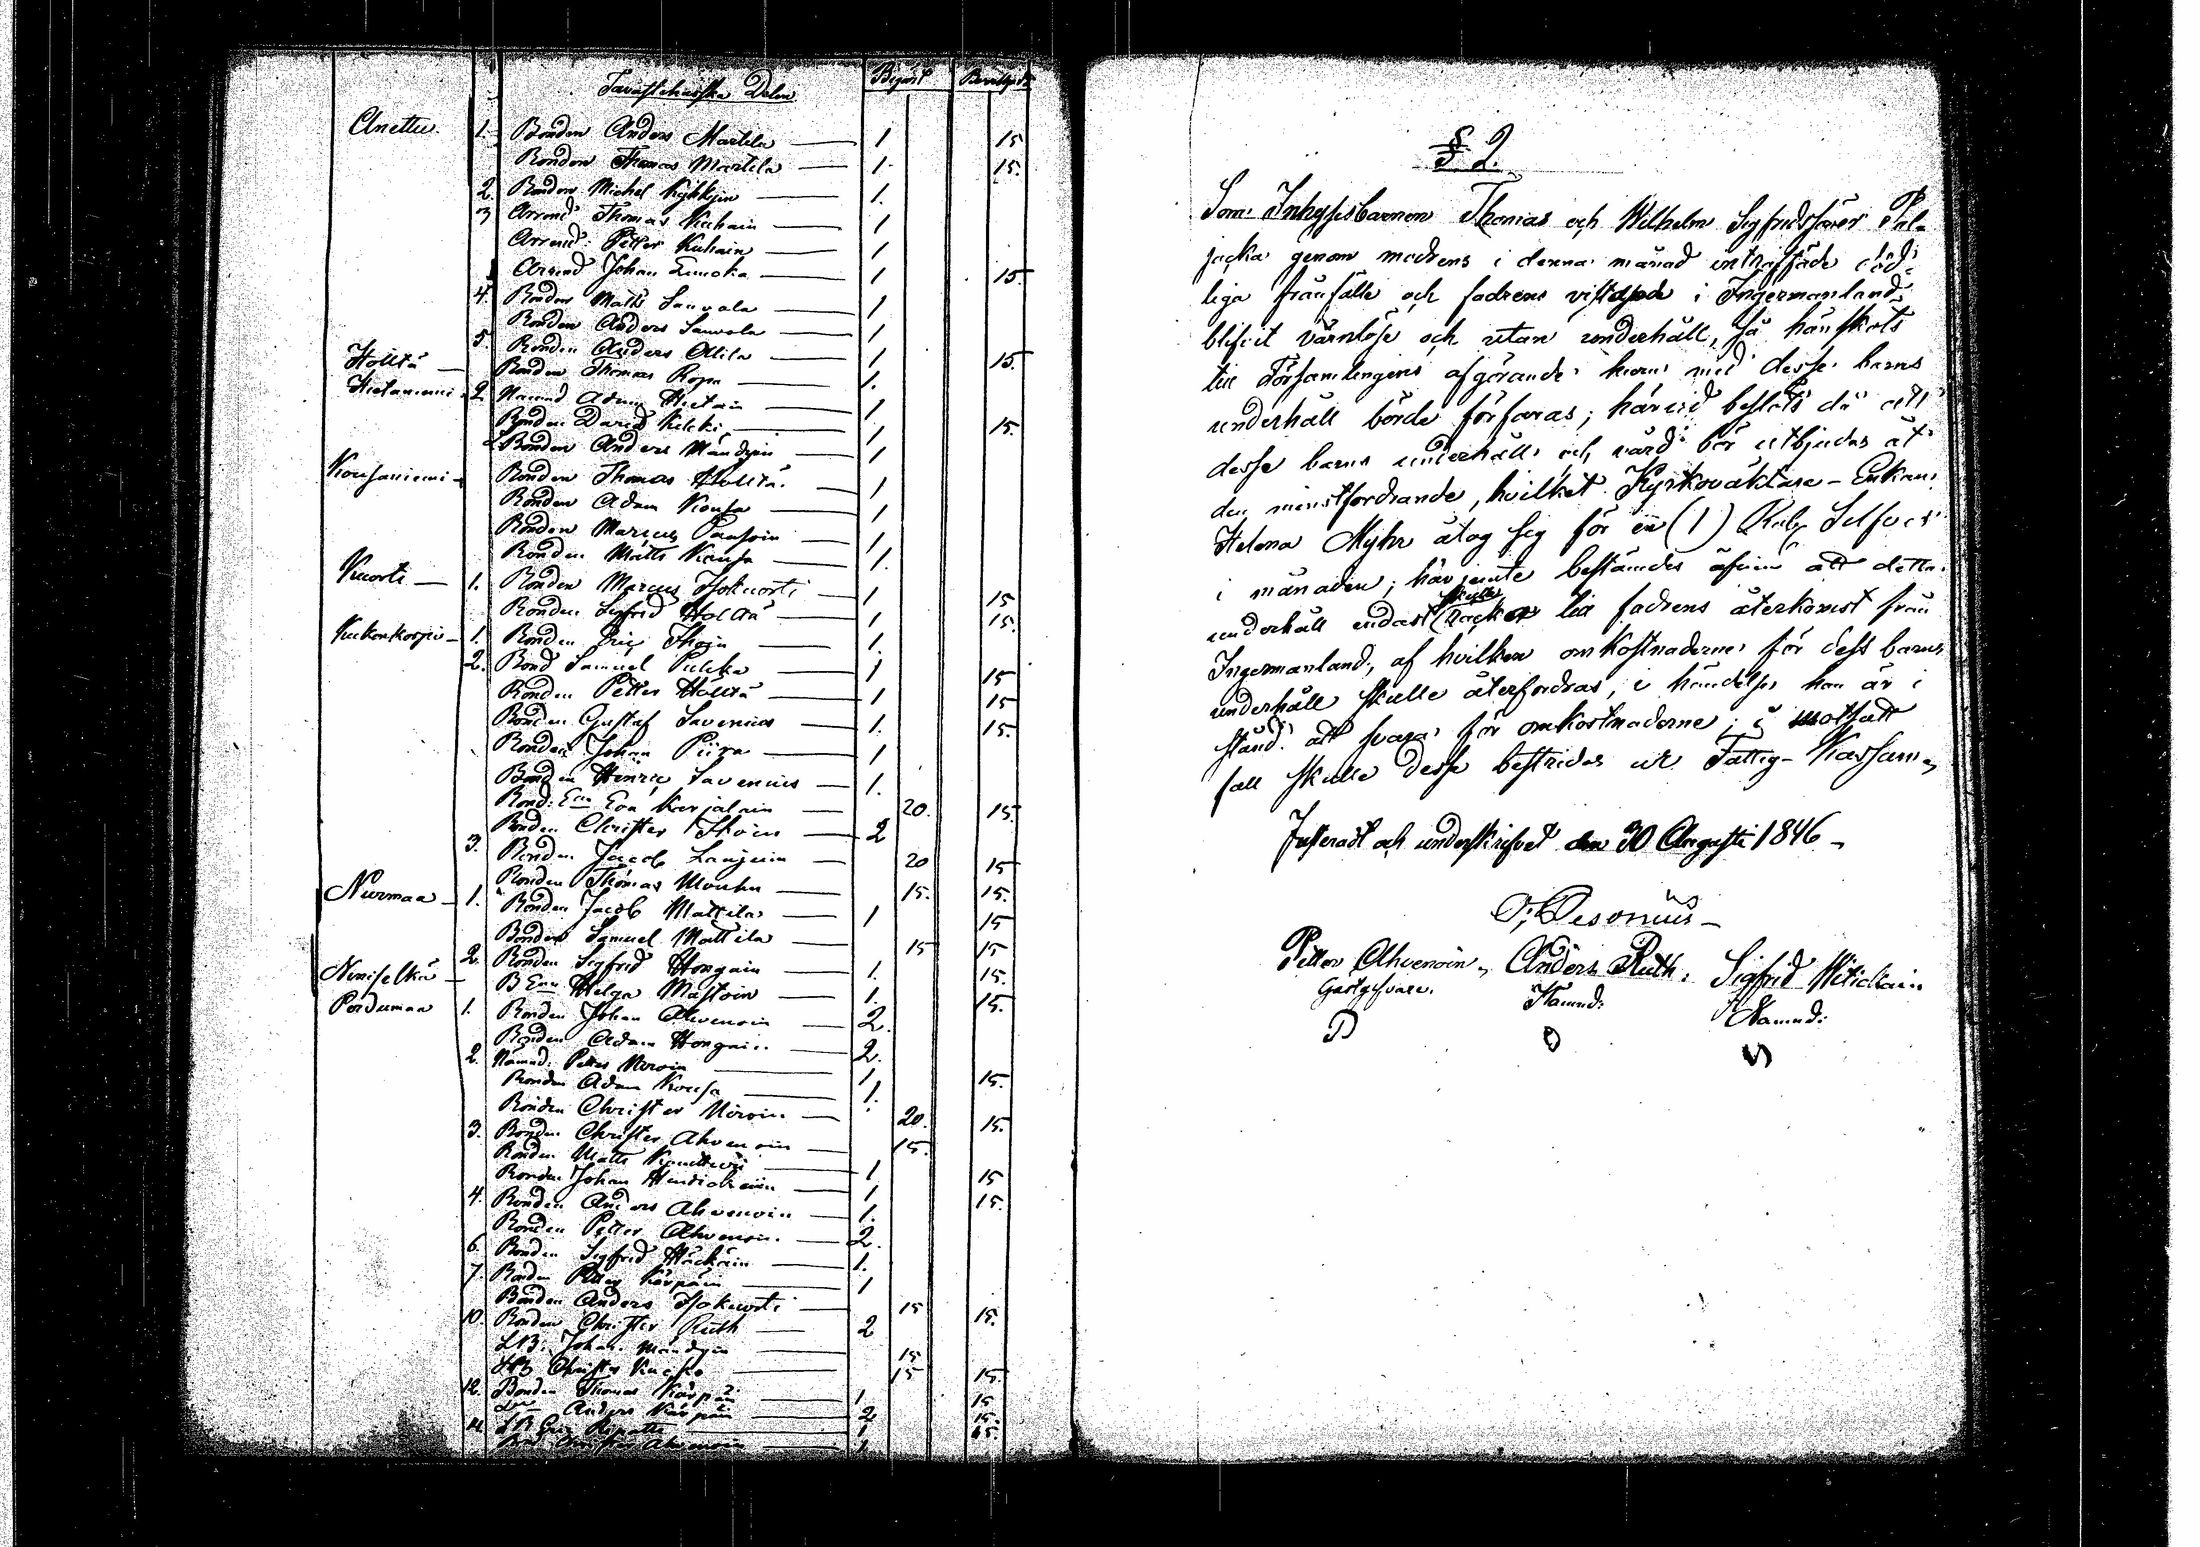 Tavastehusska Delen
Begärt Beviljade
Anettu. 1. Bonden Anders Martila — 1 15
Bonden Thomas Martila — 1 15.
2. Bonden Michel Kyhkyin — 1.
3 Arrend Thomas Kuhain — 1
Arrend: Petter Kuhain — 1
Arrend Johan — 1 15
4. Bonden Matts Sauvola — 1
Bonden Anders Sauvola — 1
5. Bonden Anders Ollila — 1 15.
Hölttä — Bonden Thomas Ropa — 1.
Hietaniemi 2. Nämnd Adam Hietain — 1
Bonden David Kekki — 1 15.
Bonden Anders Mändyin — 1
Kousaniemi — Bonden Thomas Hölttä. — 1
Bonden Adam Kousa — 1
Bonden Marcus — 1
Bonden Matts Kousa — 1.
Kuorti — 1. Bonden Marcus Isokuorti — 1 15
Bonden Sigfrid Hölttä — 1 15.
Kukonkorpi — 1. Bonden Eric Ihoin — 1.
2. Bond Samuel Pukka — 1 15
Bonden Petter Hölttä — 1 15
Bonden Gustaf Savenius — 1. 15.
Bonden Johan Piira — 1
Bonden Henric Savenius — 1.
Bond: Enn Eva Karjalain 20. 15.
Bonden Christer Ihoin — 2
3. Bonden Jacob — 20 15
Bonden Thomas Mouhu — 15. 15.
Nurmaa — 1. Bonden Jacob Mattila — 1 15
Bonden Samuel Mattila — 15 15
2. Bonden Sigfrid Hongain — 1. 15.
Nuniselkä — B Enn Helga Mastoin — 1. 15.
Pordumaa 1. Bonden Johan Ahvenoin — 2.
Bonden Adam Hongain — 2.
2. Nämnd. Petter Moroin — 1 15.
Bonden Adam Kousa — 1.
Bonden Christer Moroin — 20. 15.
3. Bonden Christer Ahvenoin — 15.
Bonden Matts — 1 15
Bonden Johan — 1 15.
4. Bonden Anders Ahvenoin — 1.
Bonden Petter Ahvenoin. — 2.
6. Bonden Sigfrid Häckäin — 1.
7. Bonden Petter Kärpäin — 1
Bonden Anders Isokuorti — 15 15.
10. Bonden Christer Ruth — 2
LB: Johan Mändyin — 15
Christer — 15 15.
12. Bonden Thomas Kärpäin 1 15
Anders Kärpäin — 2 15.
LB Eric — 1 15.
Christer Ahvenoin — 1
§ 2.
Som Inhysesbarnen Thomas och Wilhelm Sigfridssöner Pal-
jacka genom modrens i denna månad inträffade död-
liga frånfälle och fadrens vistelse i Ingermanland
blifvit värnlöse och utan underhåll, så hänsköts
till Församlingens afgörande huru med desse barns
underhåll borde förfaras; härvid beslöts då att
desse barns underhåll och vård bör utbjudas åt
den minstfordrande, hvilket Kyrkoväktare-Enkan
Helena Myhr åtog sig för en (1) Rub. Silfver
i månaden; härjemte bestämdes äfven att detta
underhåll endast skulle räcker till fadrens återkomst från
Ingermanland, af hvilken omkostnaderne för dess barns
underhåll skulle återfordras, i händelse han är i
stånd att svara för omkostnaderne; i motsatt
fall skulle desse bestridas ur Fattig-Kassan.
Justeradt och underskrifvet den 30 Augusti 1846 –
O: Desonius –
Petter Ahvenoin, Anders Ruth, Sigfrid Witickain
Gästgifvare. Nämnd: Nämnd: